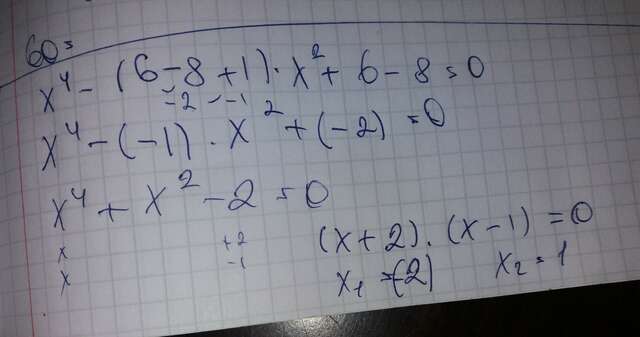 60=
x⁴ - (6-8+1)·x² + 6-8=0
-2 -1
x⁴ - (-1)·x² + (-2) =0
x⁴ + x² - 2 = 0
x +2 (x+2).(x-1) = 0
x -1 x₁ =(-2) x₂ = 1